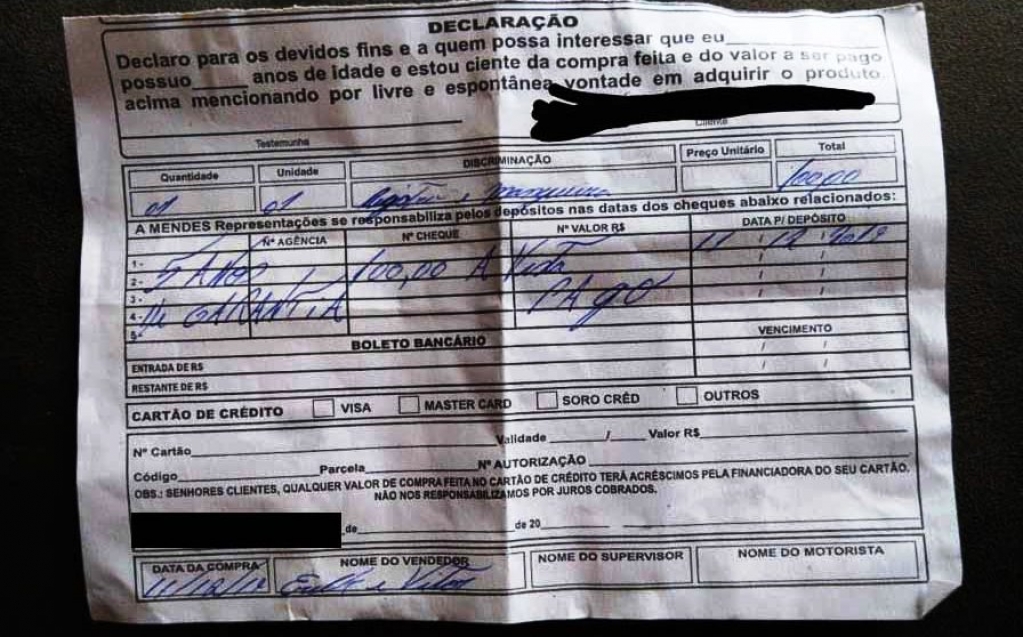 DECLARAÇÃO
Declaro para os devidos fins e a quem possa interessar que eu
possuo_____ anos de idade e estou ciente da compra feita e do valor a ser pago
acima mencionando por livre e espontânea vontade em adquirir o produto.
Testemunha Cliente
Quantidade Unidade DISCRIMINAÇÃO Preço Unitário Total
01 01 mangueira 100,00
A MENDES Representações se responsabiliza pelos depósitos nas datas dos cheques abaixo relacionados:
Nº AGÊNCIA Nº CHEQUE Nº VALOR R$ DATA P/ DEPÓSITO
1- / / 11 / 12 / 2019
2- 5 ANOS 100,00 A Vista / /
3- PAGO / /
4- de GARANTIA / /
5-
BOLETO BANCÁRIO VENCIMENTO
ENTRADA DE R$ / /
RESTANTE DE R$ / /
CARTÃO DE CRÉDITO VISA MASTER CARD SORO CRÉD OUTROS
Nº Cartão Validade ______/____ Valor R$
Código Parcela Nº AUTORIZAÇÃO
OBS.: SENHORES CLIENTES, QUALQUER VALOR DE COMPRA FEITA NO CARTÃO DE CRÉDITO TERÁ ACRÉSCIMOS PELA FINANCIADORA DO SEU CARTÃO.
NÃO NOS RESPONSABILIZAMOS POR JUROS COBRADOS.
de de 20
DATA DA COMPRA NOME DO VENDEDOR NOME DO SUPERVISOR NOME DO MOTORISTA
11/12/19